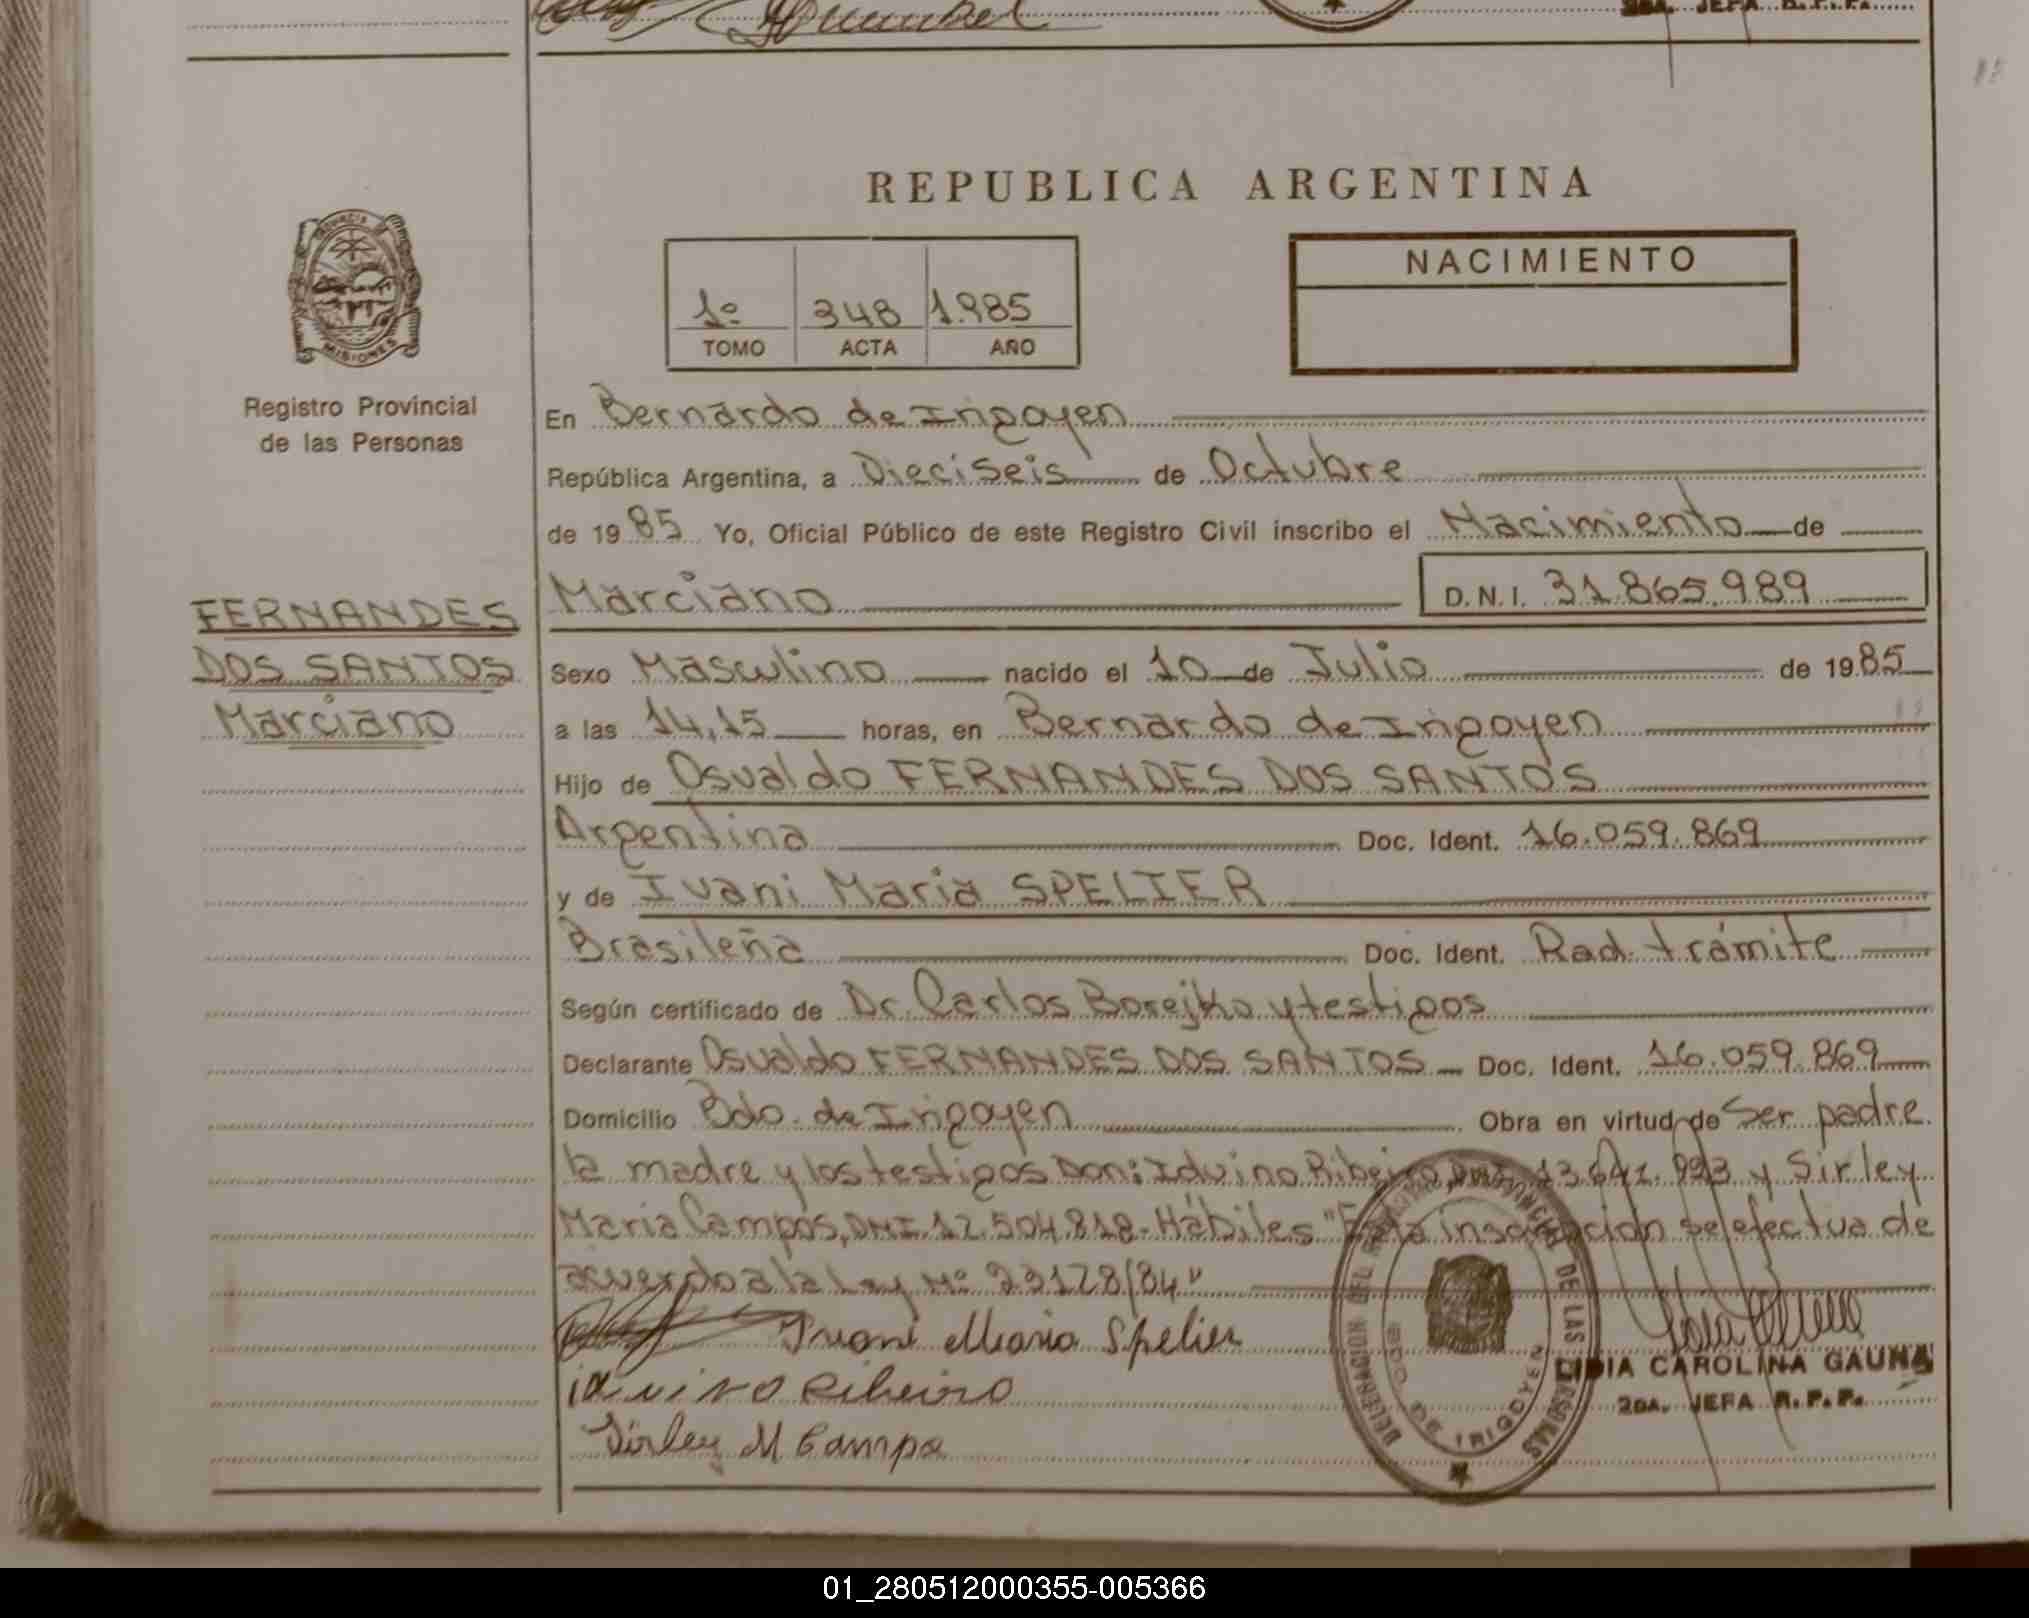 2DA. JEFA R.P.P.
REPUBLICA ARGENTINA
NACIMIENTO
1º 348 1.985
TOMO ACTA AÑO
PROVINCIA
MISIONES
Registro Provincial
de las Personas
FERNANDES
DOS SANTOS
Marciano
En Bernardo de Irigoyen
República Argentina, a Dieciseis de Octubre
de 1985 Yo, Oficial Público de este Registro Civil inscribo el Nacimiento de
Marciano D.N.I. 31.865.989
Sexo Masculino nacido el 10 de Julio de 1985
a las 14,15 horas, en Bernardo de Irigoyen
Hijo de Osvaldo FERNANDES DOS SANTOS
Argentina Doc. Ident. 16.059.869
y de Ivani Maria SPELIER
Brasileña Doc. Ident. Rad. trámite
Según certificado de Dr. Carlos Borejko y testigos
Declarante Osvaldo FERNANDES DOS SANTOS Doc. Ident. 16.059.869
Domicilio Bdo. de Irigoyen Obra en virtud de Ser padre
la madre y los testigos Don: Iduino Ribeiro, DNI. y Sirley
Maria Campos, DNI. 12.504.818- Hábiles "Esta inscripción se efectua de
acuerdo a la Ley Nº 23128/84"
Ivani Maria Spelier
iduino Ribeiro
Sirley M Campo
DELEGACION DEL REGISTRO PROVINCIAL DE LAS PERSONAS
BDO. DE IRIGOYEN
LIDIA CAROLINA GAUNA
2DA. JEFA R.P.P.
01_280512000355-005366